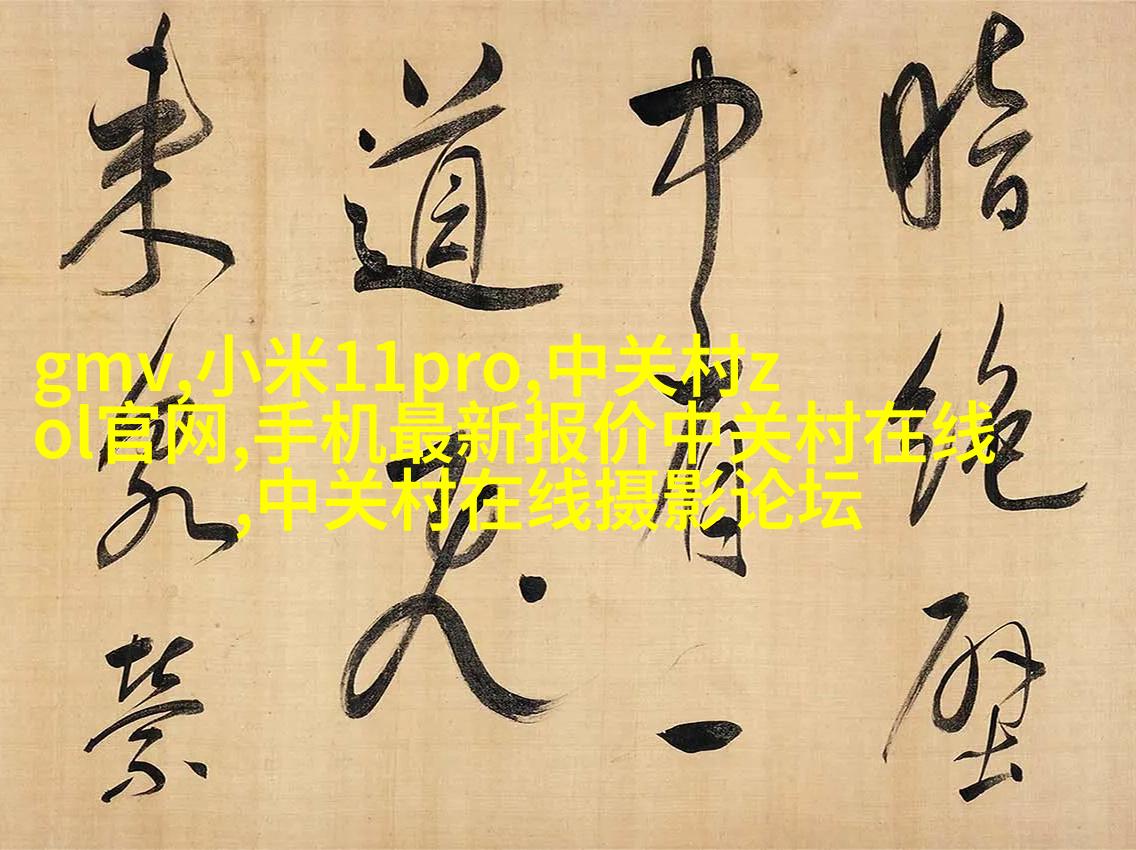 gmv,小米11pro,中关村z
ol官网,手机最新报价中关村在线
,中关村在线摄影论坛
暗絶
中有一
道飛
来泉縈